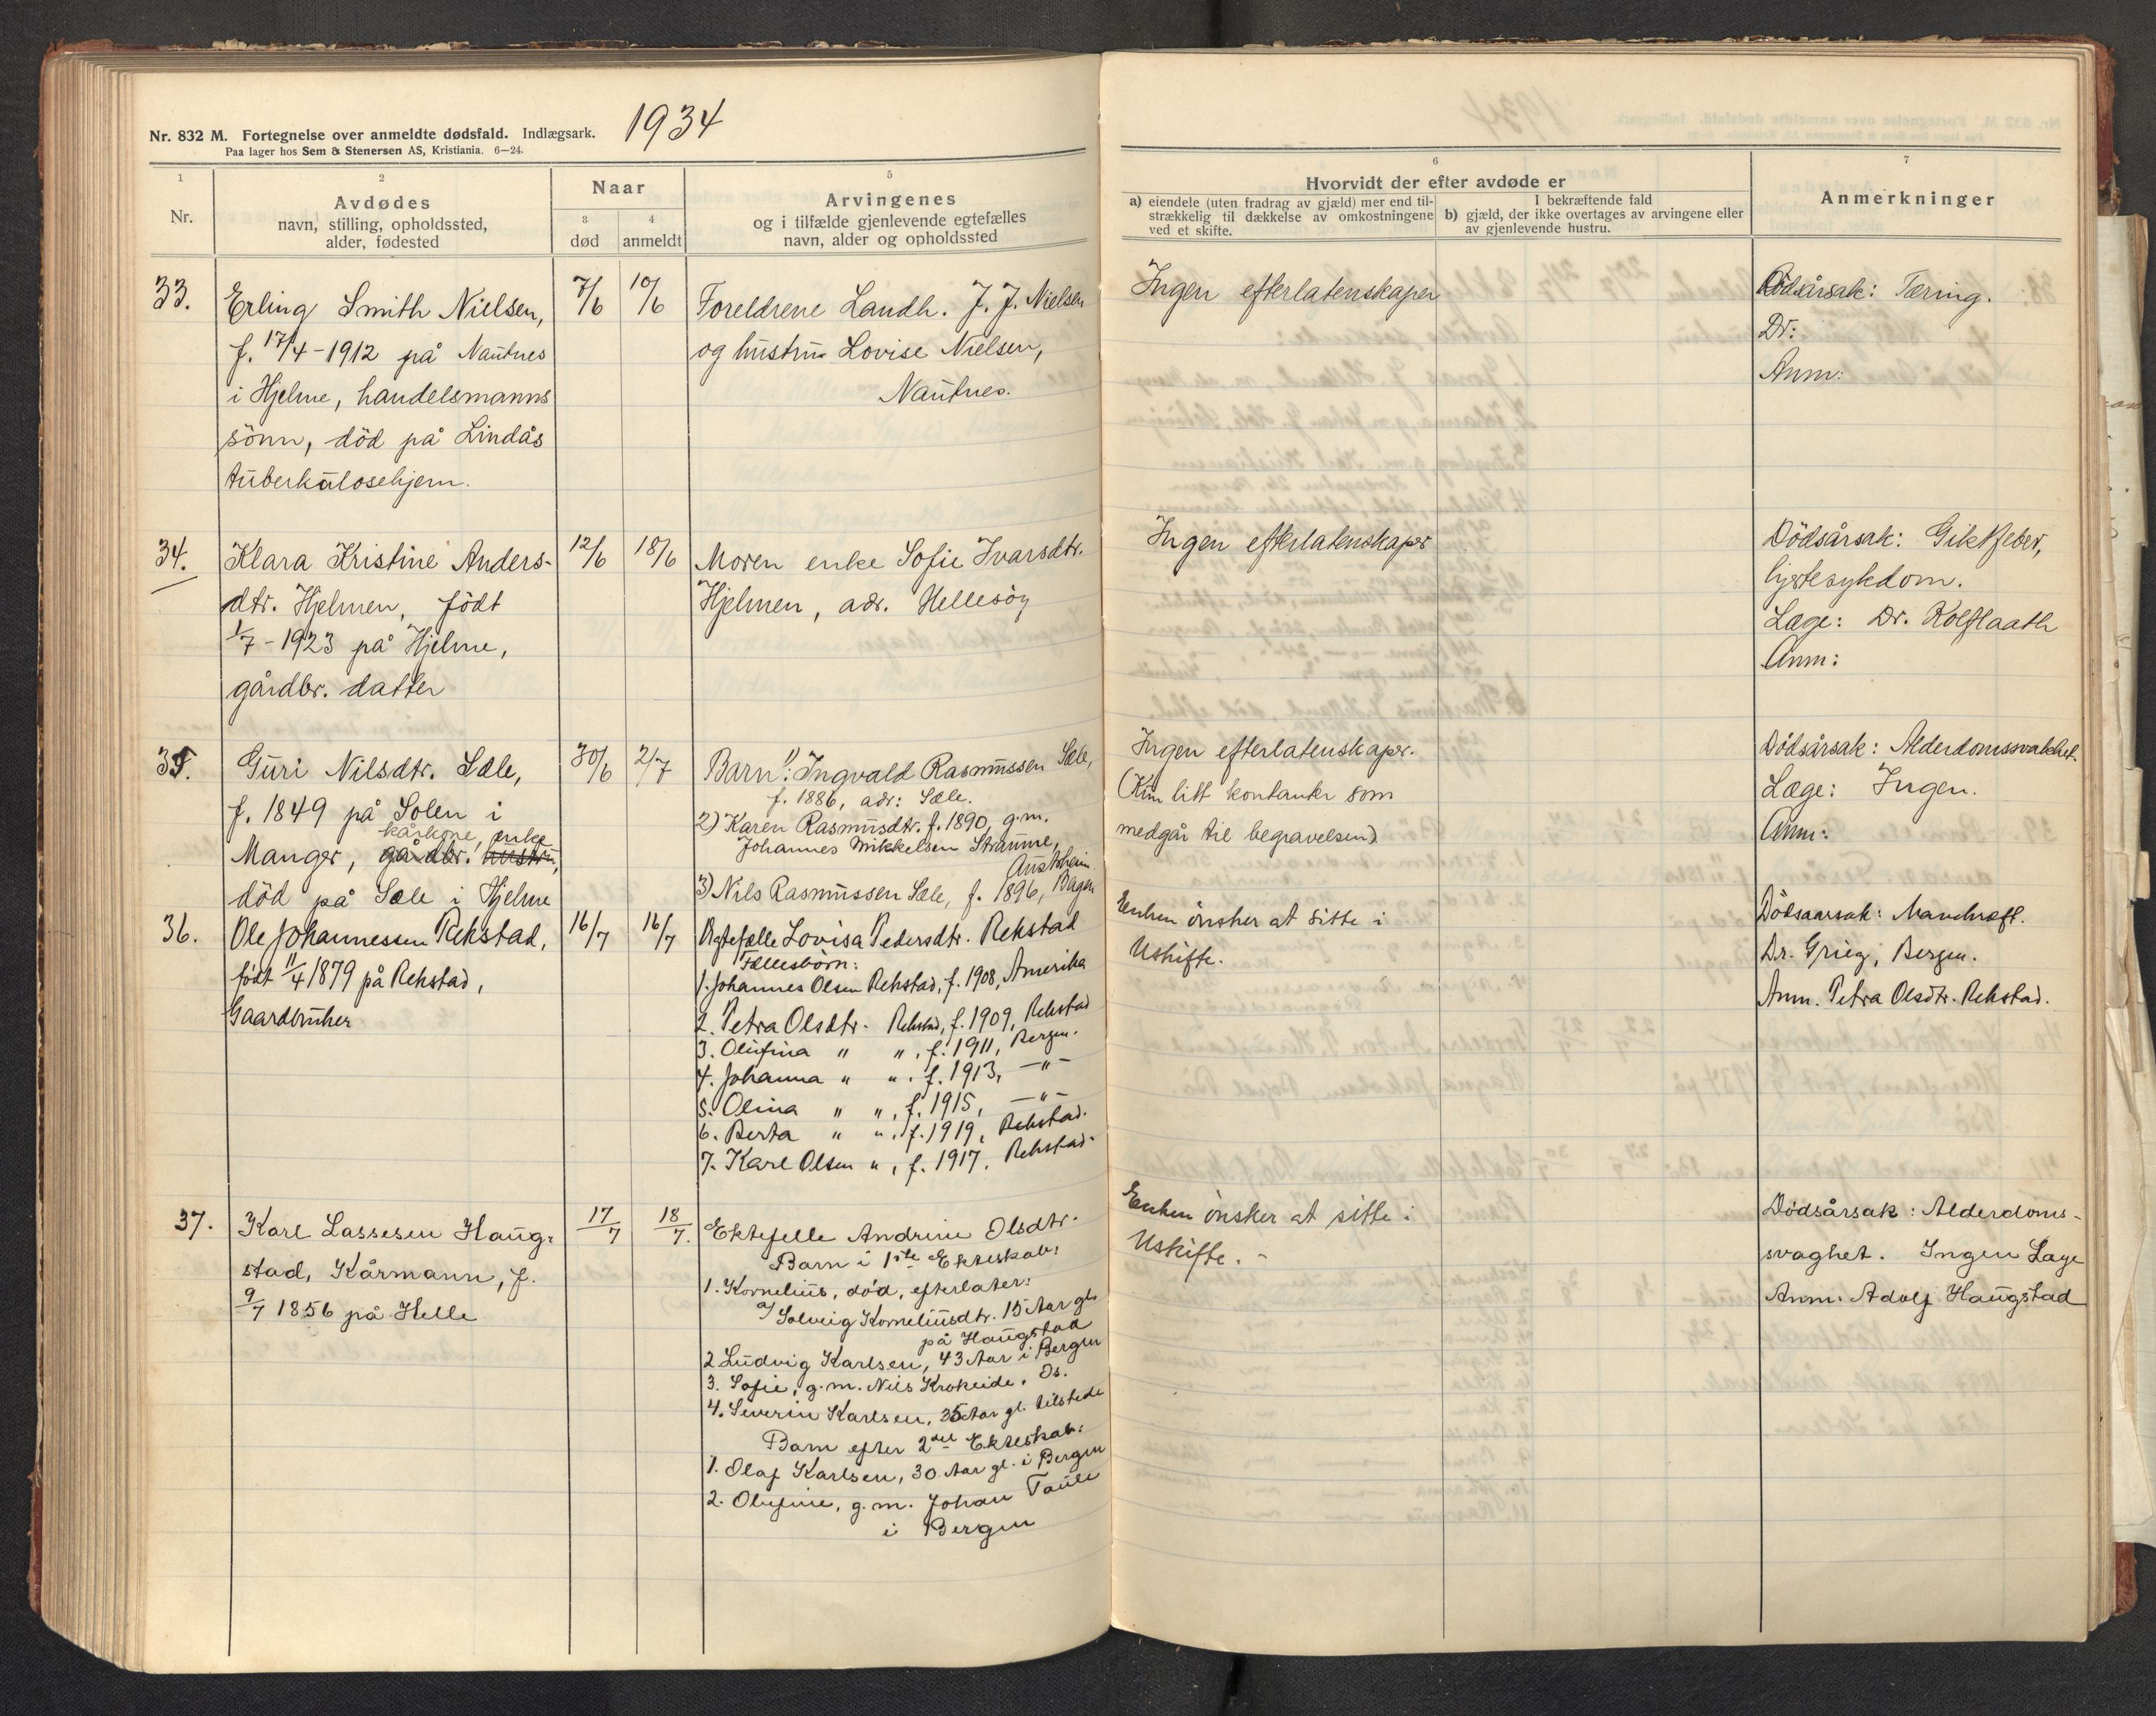 Nr. 832 M. Fortegnelse over anmeldte dødsfald. Indlægsark. 1934
Paa lager hos Sem & Stenersen AS, Kristiania. 6—24.
1
Nr.
2
Avdødes
navn, stilling, opholdssted,
alder, fødested
Naar
3
død
4
anmeldt
5
Arvingenes
og i tilfælde gjenlevende egtefælles
navn, alder og opholdssted
6
Hvorvidt der efter avdøde er
a) eiendele (uten fradrag av gjæld) mer end til-
strækkelig til dækkelse av omkostningene
ved et skifte.
I bekræftende fald
b) gjæld, der ikke overtages av arvingene eller
av gjenlevende hustru.
7
Anmerkninger
33.
Erling Smith Nielsen,
f. 17/4-1912 på Nautnes
i Hjelme, handelsmanns
sönn, död på Lindås
tuberkulosehjem.
7/6
10/6
Foreldrene Landh. J. J. Nielsen
og hustru Lovise Nielsen,
Nautnes.
Ingen efterlatenskaper
Dödsårsak: Tæring.
Dr:
Anm:
34.
Klara Kristine Anders-
dtr. Hjelmen, födt
1/7-1923 på Hjelme,
gårdbr. datter
12/6
18/6
Moren enke Sofie Ivarsdtr.
Hjelmen, adr. Hellesöy
Ingen efterlatenskaper
Dödsårsak: Giktfeber,
hjertesykdom.
Læge: Dr. Kolflaath
Anm:
35.
Guri Nilsdtr. Sæle,
f. 1849 på Solen i
kårkone, enke
Manger, gårdbr. hustru,
död på Sæle i Hjelme
30/6
2/7
Barn: 1) Ingvald Rasmussen Sæle,
f. 1886, adr: Sæle.
2) Karen Rasmusdtr. f. 1890, g.m.
Johannes Mikkelsen Straume,
Austrheim
3) Nils Rasmussen Sæle, f. 1896, Bergen
Ingen efterlatenskaper.
(Kun litt kontanter som
medgår til begravelsen)
Dödsårsak: Alderdomssvakhet.
Læge: Ingen.
Anm:
36.
Ole Johannessen Rekstad,
født 11/4 1879 på Rekstad,
Gaardbruker
16/7
16/7
Egtefælle Lovisa Pedersdtr. Rekstad
Fællesbörn:
1. Johannes Olsen Rekstad, f. 1908, Amerika
2. Petra Olsdtr. Rekstad, f. 1909, Rekstad
3. Olufina " ", f. 1911, Bergen.
4. Johanna " ", f. 1913, —"—
5. Olina " ", f. 1915, —"—
6. Berta " ", f. 1919, Rekstad.
7. Karl Olsen ", f. 1917, Rekstad.
Enken önsker at sitte i
Uskifte.
Dödsaarsak: Mavekræft.
Dr. Grieg, Bergen.
Anm. Petra Olsdtr. Rekstad.
37.
Karl Lassesen Haug-
stad, Kårmann, f.
9/7 1856 på Helle
17/7
18/7.
Ektefelle Andrine Olsdtr.
Barn i 1ste Ekteskab:
1. Kornelius, död, efterlater:
a) Solveig Korneliusdtr. 15 Aar gl.
på Haugstad
2 Ludvig Karlsen, 43 Aar i Bergen
3. Sofie, g.m. Nils Krokeide, Os.
4. Severin Karlsen, 35 Aar gl. tilstede
Barn efter 2det Ekteskab:
1. Olaf Karlsen, 30 Aar gl. i Bergen
2. Olufine, g.m. Johan Taule
i Bergen
Enken önsker at sitte i
Uskifte.-
Dödsårsak: Alderdoms-
svaghet. Ingen Læge
Anm. Adolf Haugstad